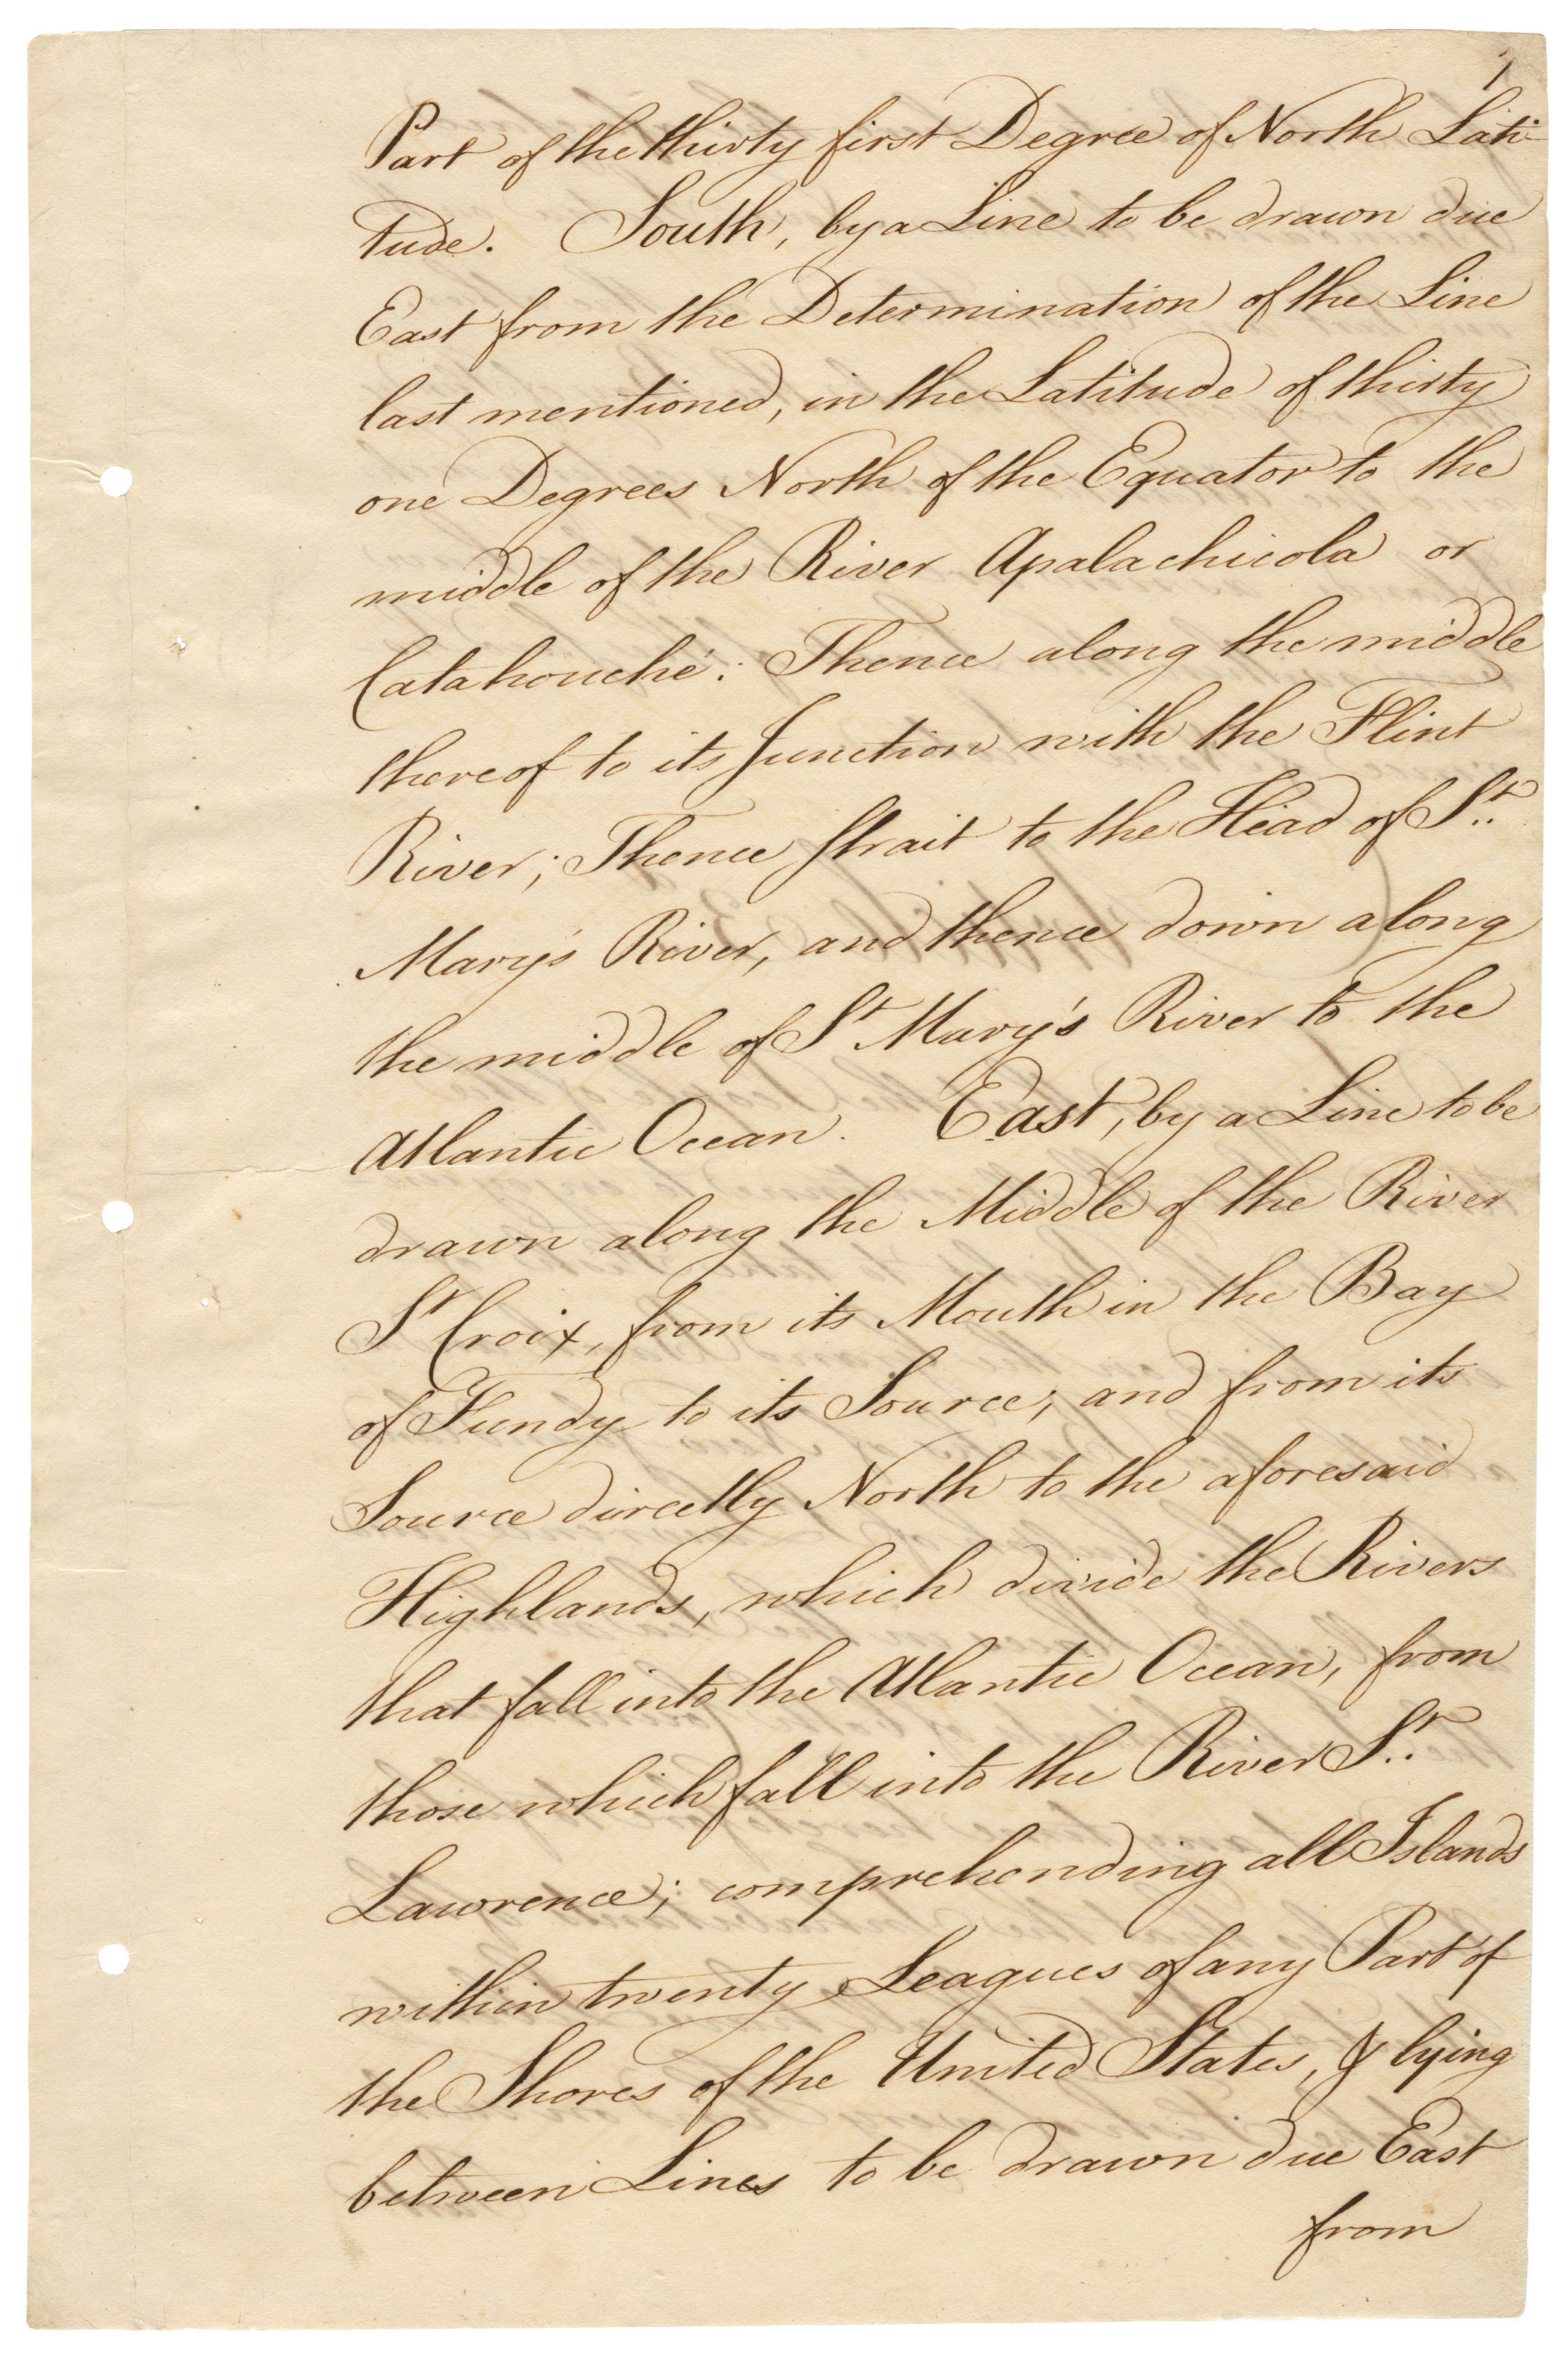 Part of the thirty first Degree of North Lati-
tude. South, by a Line to be drawn due
East from the Determination of the Line
last mentioned, in the Latitude of thirty
one Degrees North of the Equator to the
middle of the River Apalachicola or
Catahouche: Thence along the middle
thereof to its Junction with the Flint
River; Thence strait to the Head of St.
Mary's River, and thence down along
the middle of St Mary's River to the
Atlantic Ocean. East, by a Line to be
drawn along the Middle of the River
St Croix, from its Mouth in the Bay
of Fundy to its Source; and from its
Source directly North to the aforesaid
Highlands, which divide the Rivers
that fall into the Atlantic Ocean, from
those which fall into the River St.
Lawrence; comprehending all Islands
within twenty Leagues of any Part of
the Shores of the United States, & lying
between Lines to be drawn due East
from